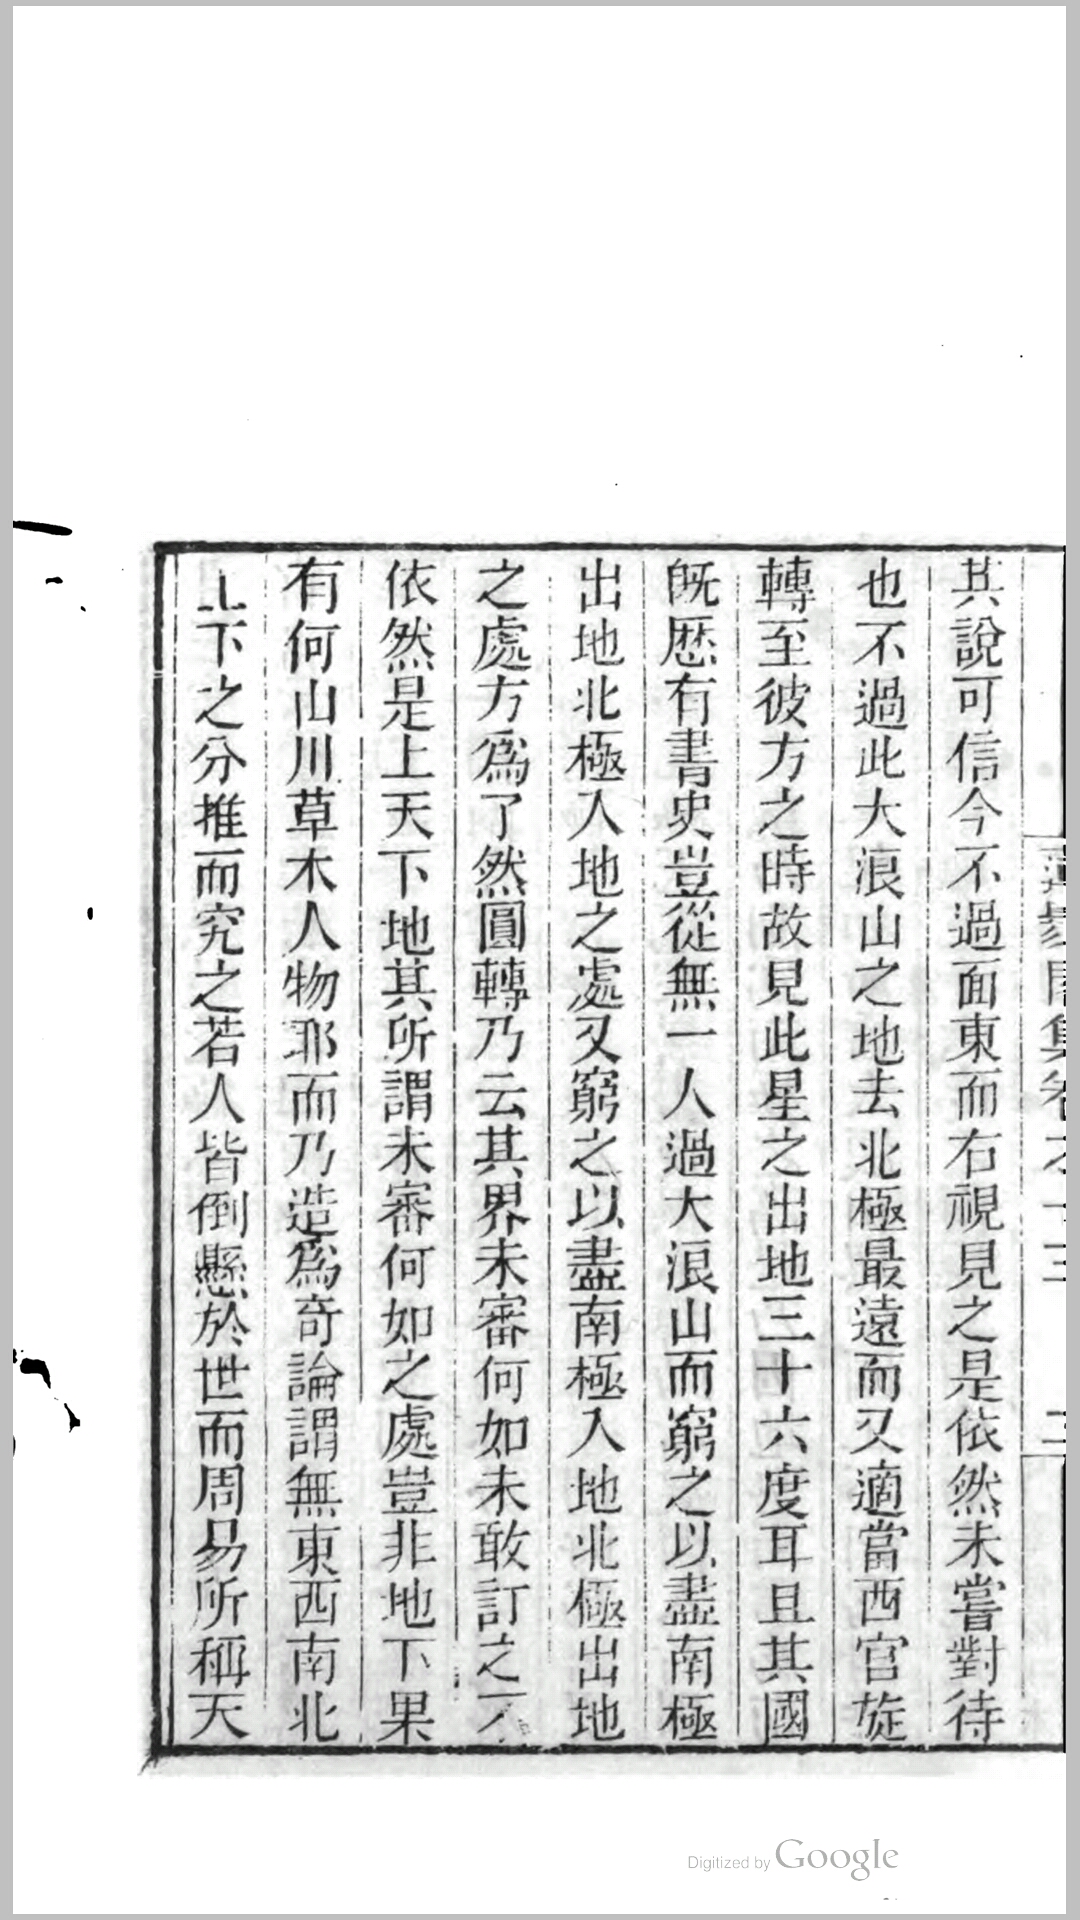 其說可信今不過面東而右視見之是依然未嘗對待
也不過此大浪山之地去北極最遠而又適當西宮旋
轉至彼方之時故見此星之出地三十六度耳且其國
旣歷有書史豈從無一人過大浪山而窮之以盡南極
出地北極入地之處又窮之以盡南極入地北極出地
之處方爲了然圓轉乃云其界未審何如未敢訂之
依然是上天下地其所謂未審何如之處豈非地下果
有何山川草木人物耶而乃造爲奇論謂無東西南北
上下之分推而究之若人皆倒懸於世而周易所稱天
Digitized by Google